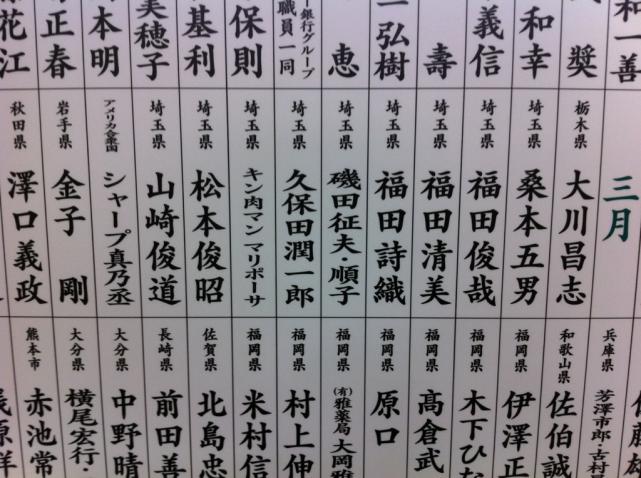 和一善
奨
和幸
義信
壽
一弘樹
恵
ー銀行グループ
職員一同
保則
基利
美穂子
本明
正春
花江
三月
栃木県
大川昌志
埼玉県
桑本五男
埼玉県
福田俊哉
埼玉県
福田清美
埼玉県
福田詩織
埼玉県
磯田征夫・順子
埼玉県
久保田潤一郎
埼玉県
キン肉マン マリポーサ
埼玉県
松本俊昭
埼玉県
山崎俊道
アメリカ合衆国
シャープ真乃丞
岩手県
金子 剛
秋田県
澤口義政
兵庫県
芳澤市郎・古村
和歌山県
佐伯誠
福岡県
伊澤正
福岡県
木下ひな
福岡県
髙倉武
福岡県
原口
福岡県
(有)雅薬局 大岡雅
福岡県
村上伸
福岡県
米村信
佐賀県
北島忠
長崎県
前田善
大分県
中野晴
大分県
横尾宏行・
熊本市
赤池常